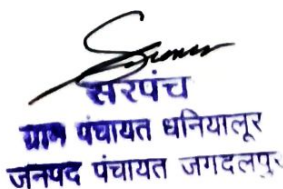 सरपंच
ग्राम पंचायत धनियालूर
जनपद पंचायत जगदलपुर